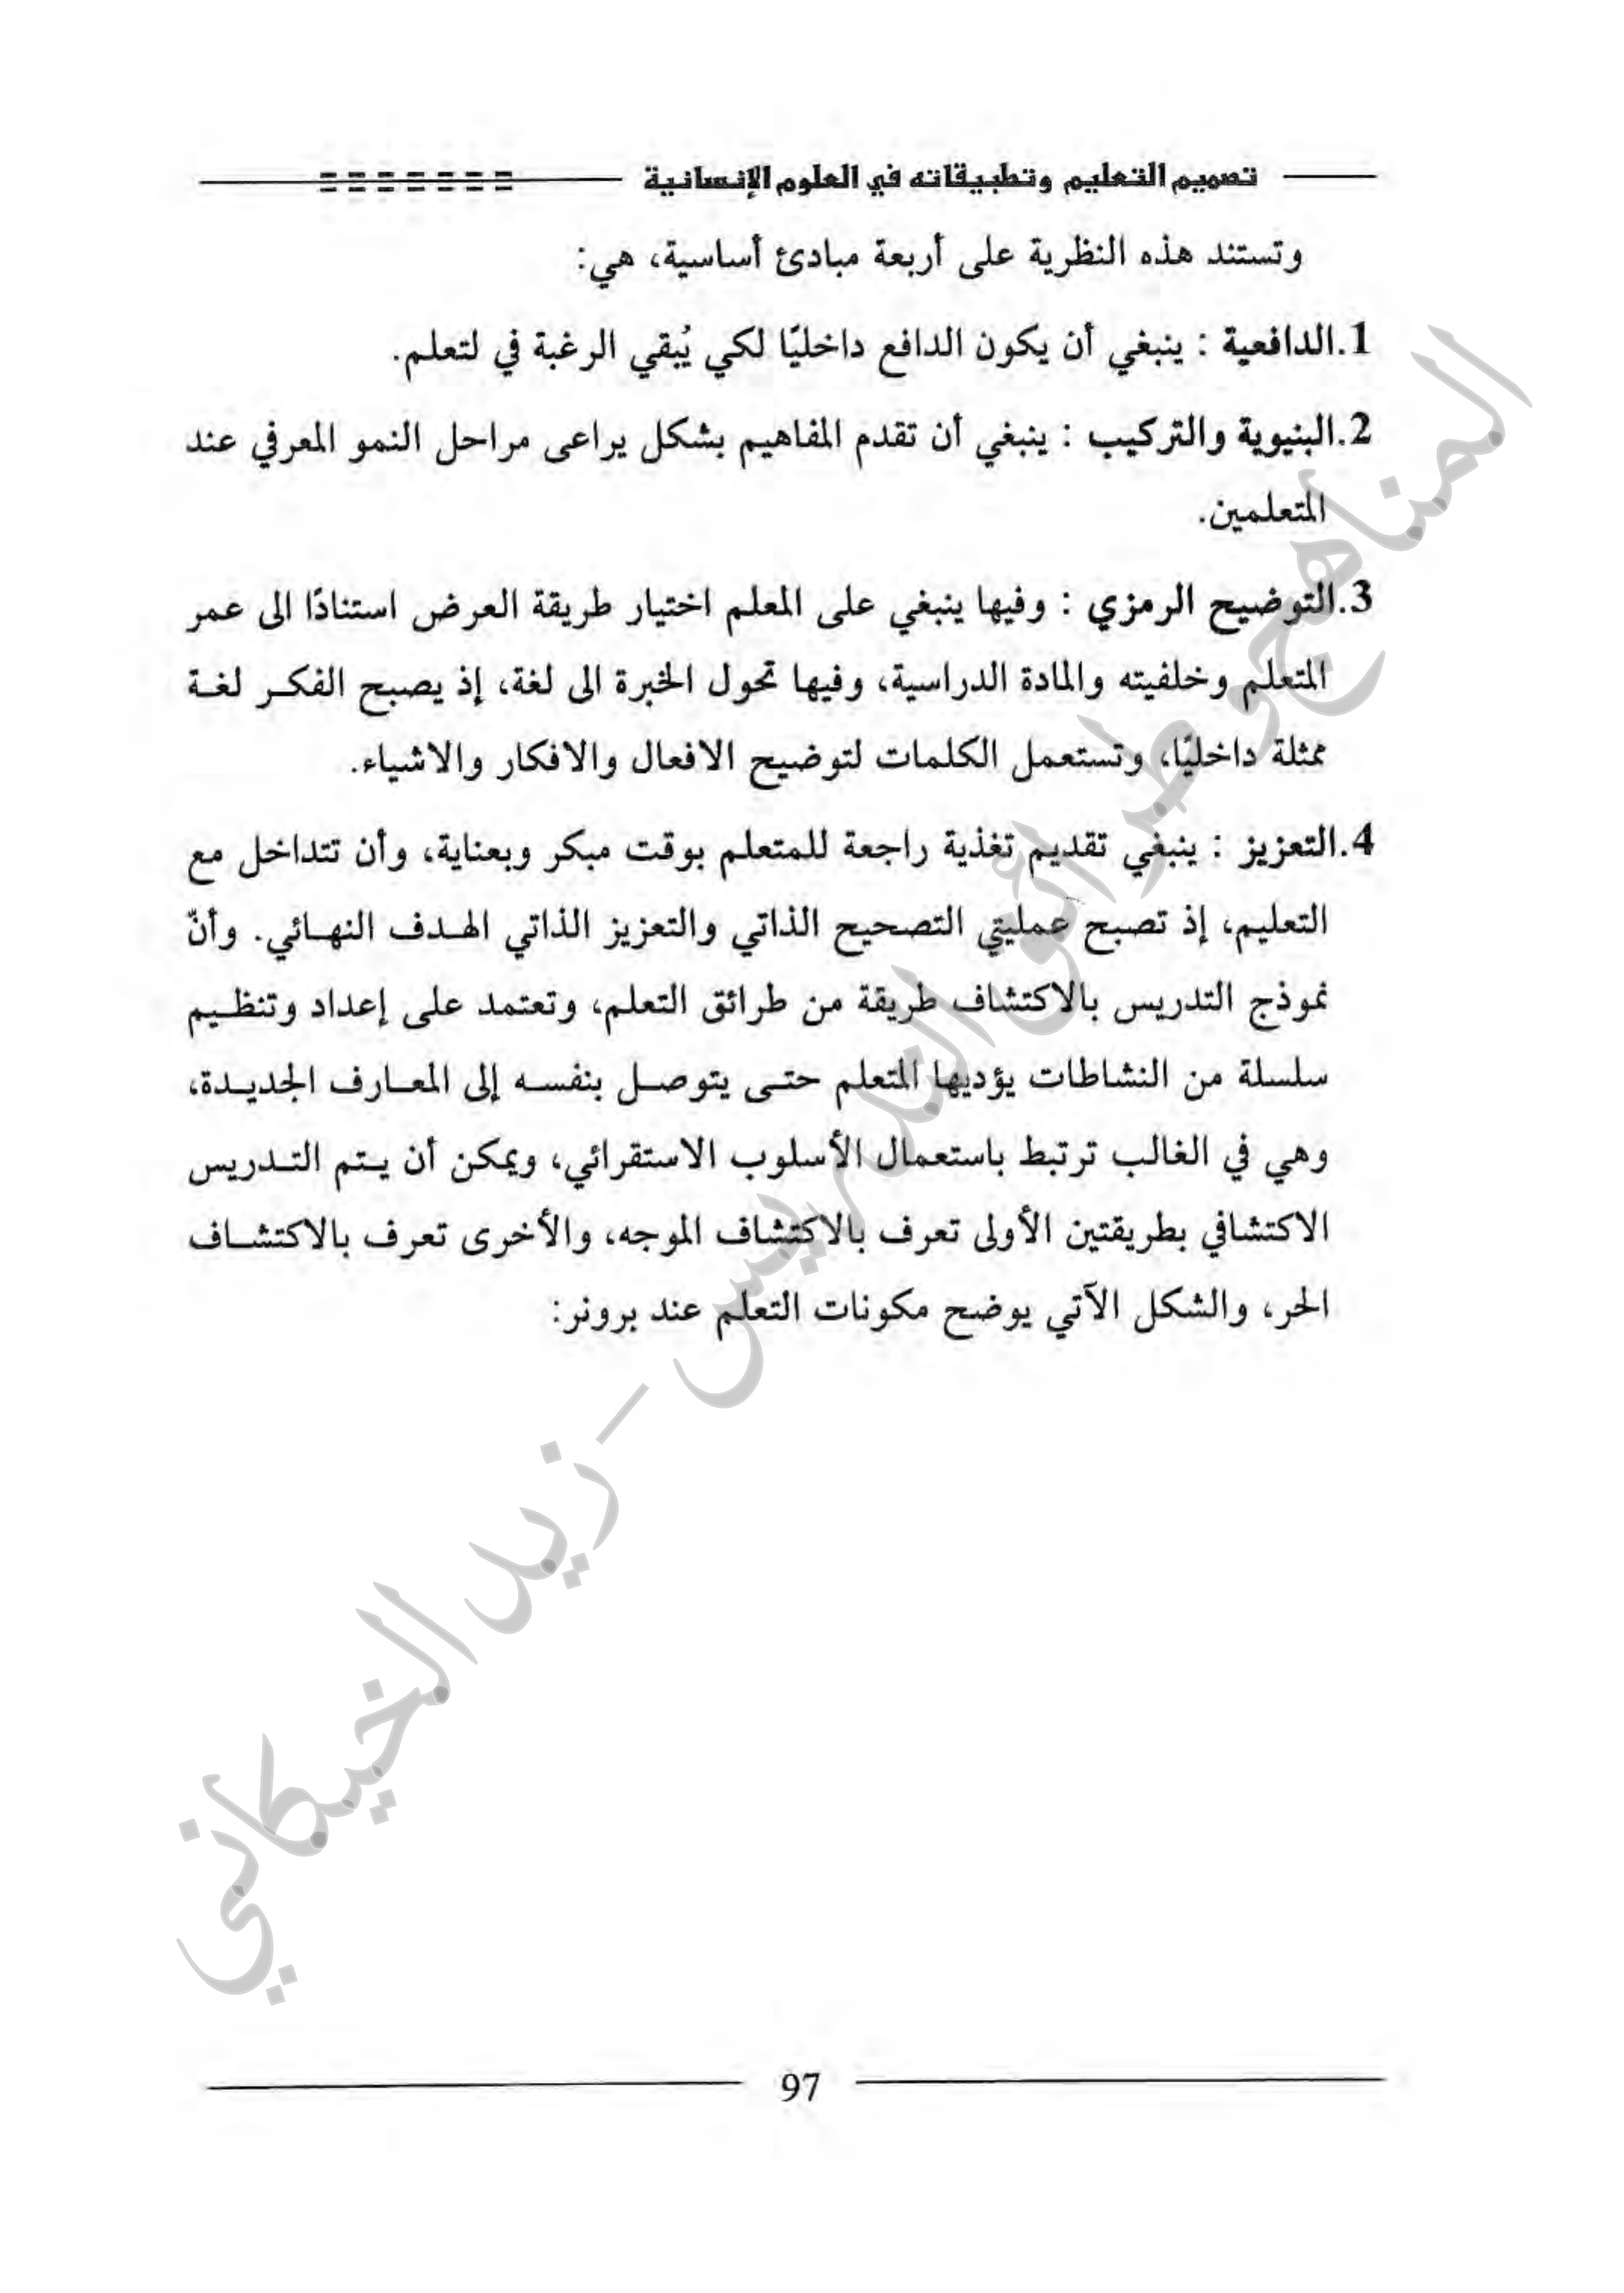 تصميم التعليم وتطبيقاته في العلوم الإنسانية
وتستند هذه النظرية على أربعة مبادئ أساسية، هي:
1.الدافعية : ينبغي أن يكون الدافع داخليًا لكي يُبقي الرغبة في لتعلم.
2.البنيوية والتركيب : ينبغي أن تقدم المفاهيم بشكل يراعى مراحل النمو المعرفي عند
المتعلمين.
3.التوضيح الرمزي : وفيها ينبغي على المعلم اختيار طريقة العرض استنادًا الى عمر
المتعلم وخلفيته والمادة الدراسية، وفيها تحول الخبرة الى لغة، إذ يصبح الفكر لغة
ممثلة داخليًا، وتستعمل الكلمات لتوضيح الافعال والافكار والاشياء.
4.التعزيز : ينبغي تقديم تغذية راجعة للمتعلم بوقت مبكر وبعناية، وأن تتداخل مع
التعليم، إذ تصبح عمليتي التصحيح الذاتي والتعزيز الذاتي الهدف النهائي. وأنّ
نموذج التدريس بالاكتشاف طريقة من طرائق التعلم، وتعتمد على إعداد وتنظيم
سلسلة من النشاطات يؤديها المتعلم حتى يتوصل بنفسه إلى المعارف الجديدة،
وهي في الغالب ترتبط باستعمال الأسلوب الاستقرائي، ويمكن أن يتم التدريس
الاكتشافي بطريقتين الأولى تعرف بالاكتشاف الموجه، والأخرى تعرف بالاكتشاف
الحر، والشكل الآتي يوضح مكونات التعلم عند برونر:
المناهج وطرائق التدريس - زيد الخيكاني
97